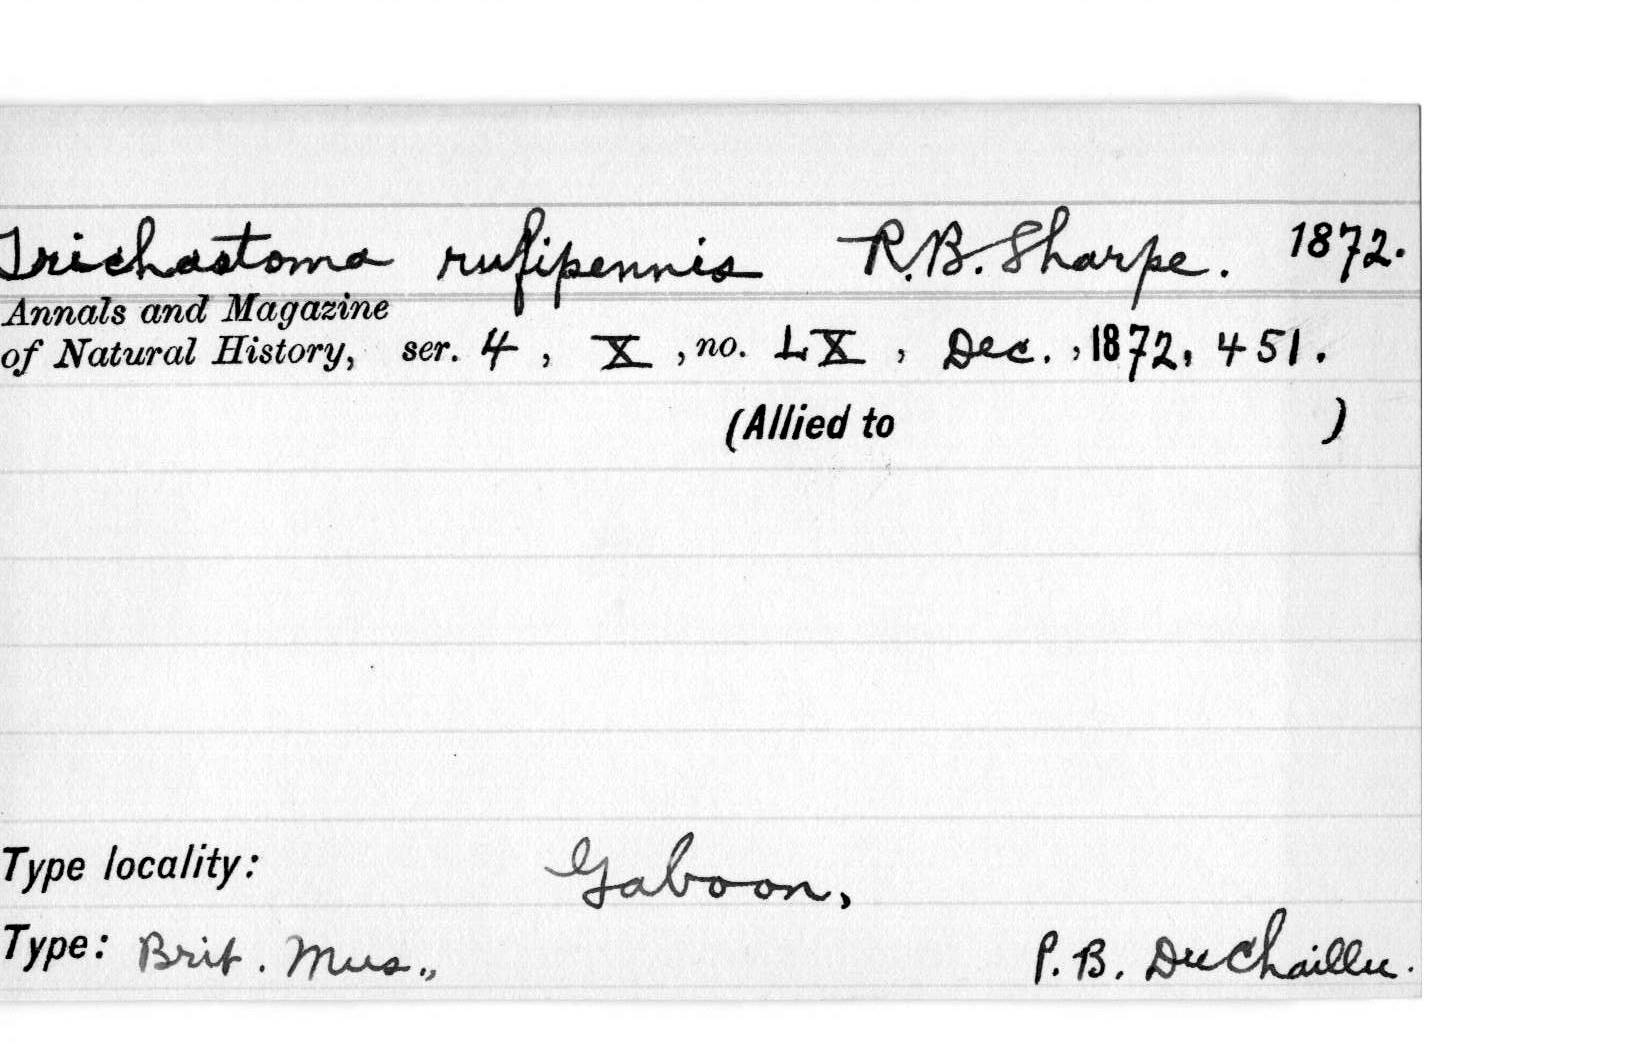 Trichastoma rufipennis R.B. Sharpe. 1872.
Annals and Magazine
of Natural History, ser. 4, X, no. LX, Dec., 1872, 451.
(Allied to )
Type locality: Gaboon,
Type: Brit. Mus., P. B. DuChaillu.